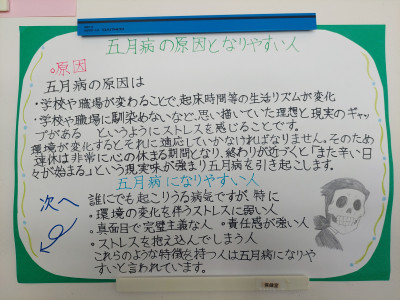 五月病の原因となりやすい人
◦原因
五月病の原因は
・学校や職場が変わることで、起床時間等の生活リズムが変化
・学校や職場に馴染めないなど、思い描いていた理想と現実のギャッ
プがある というようにストレスを感じることです。
環境が変化するとそれに適応していかなければなりません。そのため
連休は非常に心の休まる期間となり、終わりが近づくと「また辛い日々
が始まる」という現実味が強まり五月病を引き起こします。
五月病になりやすい人
次へ
誰にでも起こりうる病気ですが、特に
・環境の変化を伴うストレスに弱い人
・真面目で完璧主義な人 ・責任感が強い人
・ストレスを抱え込んでしまう人
これらのような特徴を持つ人は五月病になりや
すいと言われています。